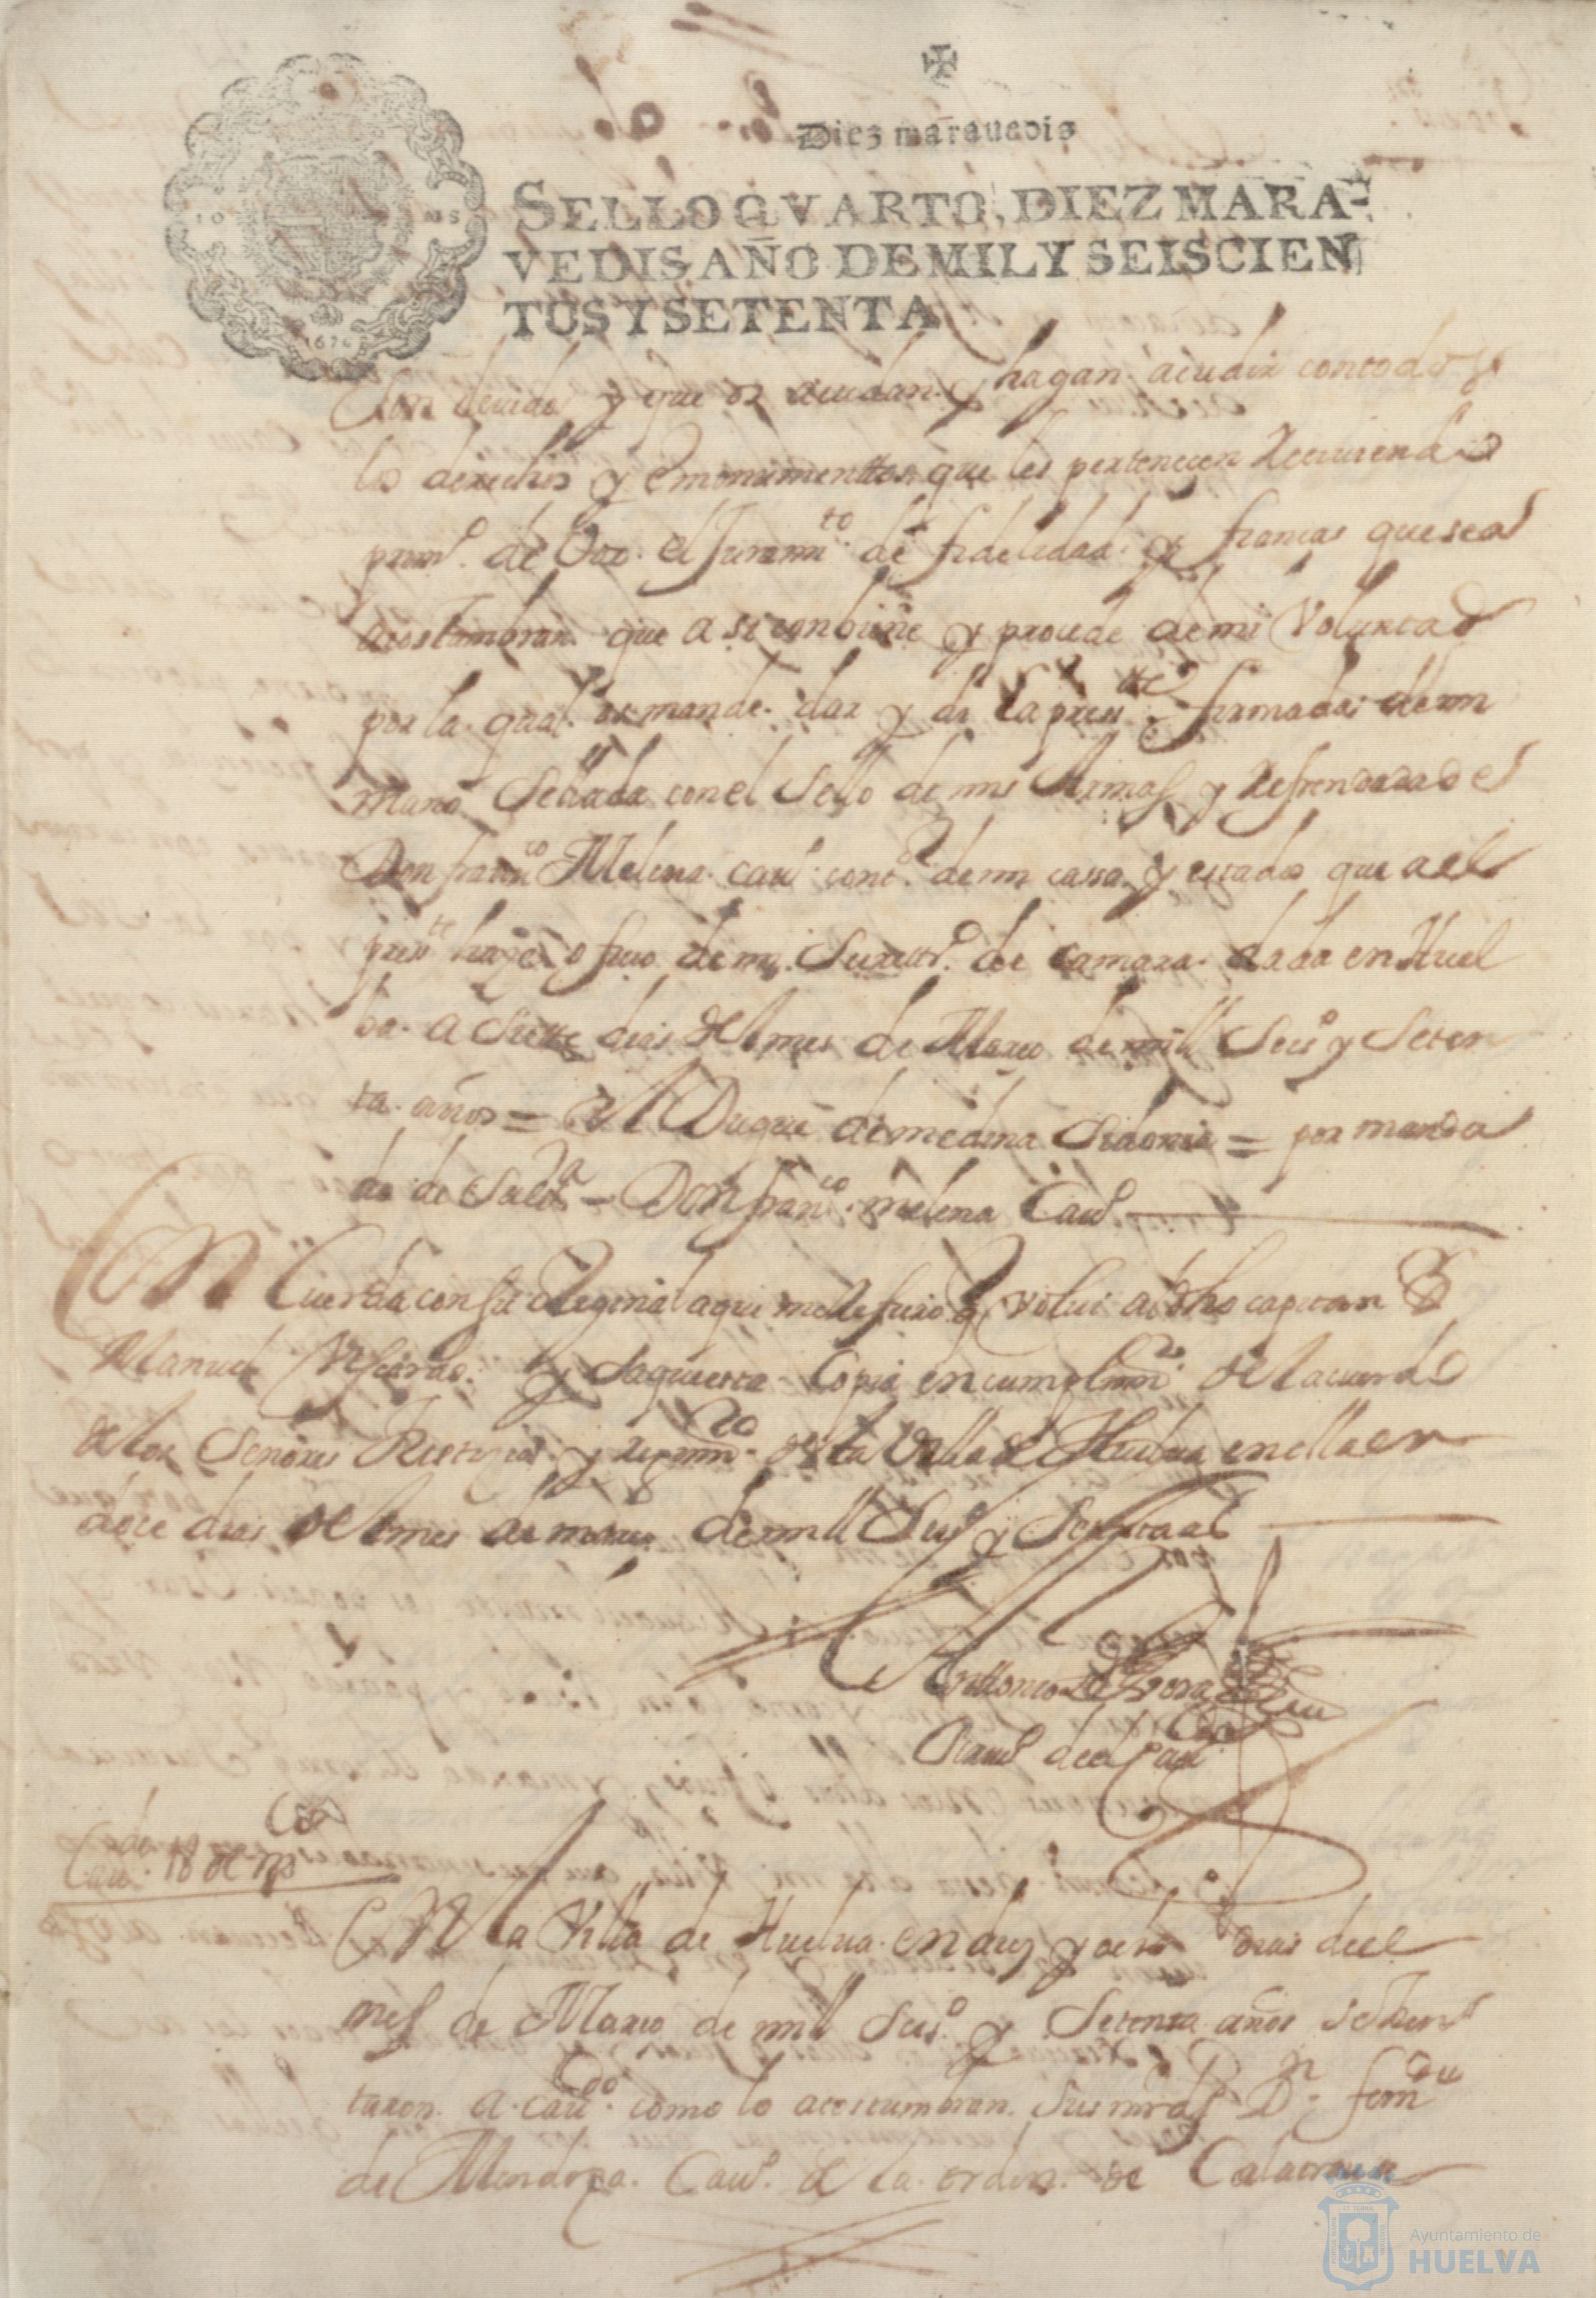 Diez marauedis
SELLO QVARTO, DIEZ MARA-
VEDIS AÑO DE MIL Y SEISCIEN
TOS Y SETENTA
1670
son deuidos y que os acudan y hagan acudir con todos
los derechos y emonumenttos que les pertenecen Receuiendo
primº. de Vos. el Juramᵗᵒ. de fidelidad y fianças que se as
acostumbran que asi conbiene y procede de mi Voluntad
por la qual os mande dar y di la presᵗᵉ firmada de mi
mano Sellada con el Sello de mis Armas y Refrendada de
Don franᶜᵒ Melena cauº. contº. de mi cassa y estados que a el
presᵗᵉ haze ofiçio de mi Secrettº. de camara dada en Huel
ba a Siette dias del mes de Março de mill Seisº y Seten
ta años = El Duque de medina Sidonia = por manda
do de Su exᵃ = Don franᶜᵒ. melena Cauº.
Concuerda con su Original a que me Refiero q volui a dho capitan
Manuel y saque esta Copia en cumplimᵗᵒ del acuerdo
de los Señores Justiçia y regimᵗᵒ desta Villa de Huelua en ella en
doce dias del mes de março de mill Seisº y Setenta aº
Anttonio de
escriuº del Cauº
Cauᵈᵒ. 18 de mço
En la Villa de Huelua en diez y ocho dias del
mes de Março de mill Seisº. y Setenta años se Jun
taron a cauᵈᵒ. como lo acostumbran. Sus mrds Dⁿ. fernᵈᵒ
de Mendoza. Cauº. de la orden de Calatraua
Ayuntamiento de
HUELVA